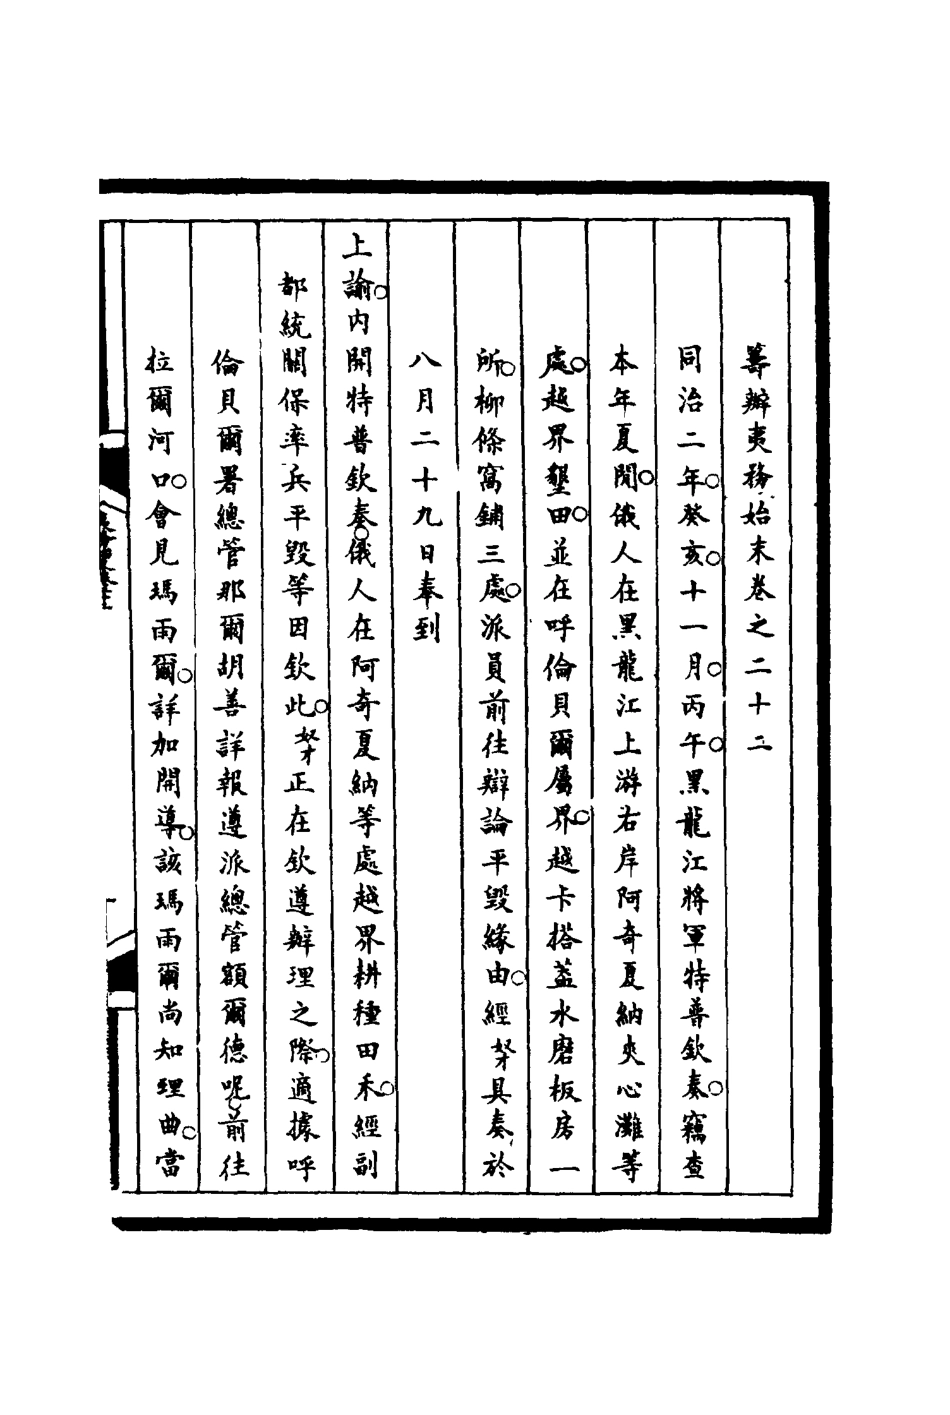 籌辦夷務始末卷之二十二
同治二年。癸亥。十一月。丙午。黑龍江將軍特普欽奏。竊查
本年夏間。俄人在黑龍江上游右岸阿奇夏納夾心灘等
處。越界墾田。並在呼倫貝爾屬界。越卡搭蓋水磨板房一
所。柳條窩鋪三處。派員前往辯論平毀緣由。經奴才具奏於
八月二十九日奉到
上諭。內開特普欽奏。俄人在阿奇夏納等處越界耕種田禾。經副
都統關保率兵平毀等因欽此。奴才正在欽遵辦理之際。適據呼
倫貝爾署總管那爾胡善詳報遵派總管額爾德呢。前往
拉爾河口。會見瑪雨爾。詳加開導。該瑪雨爾尚知理曲。當